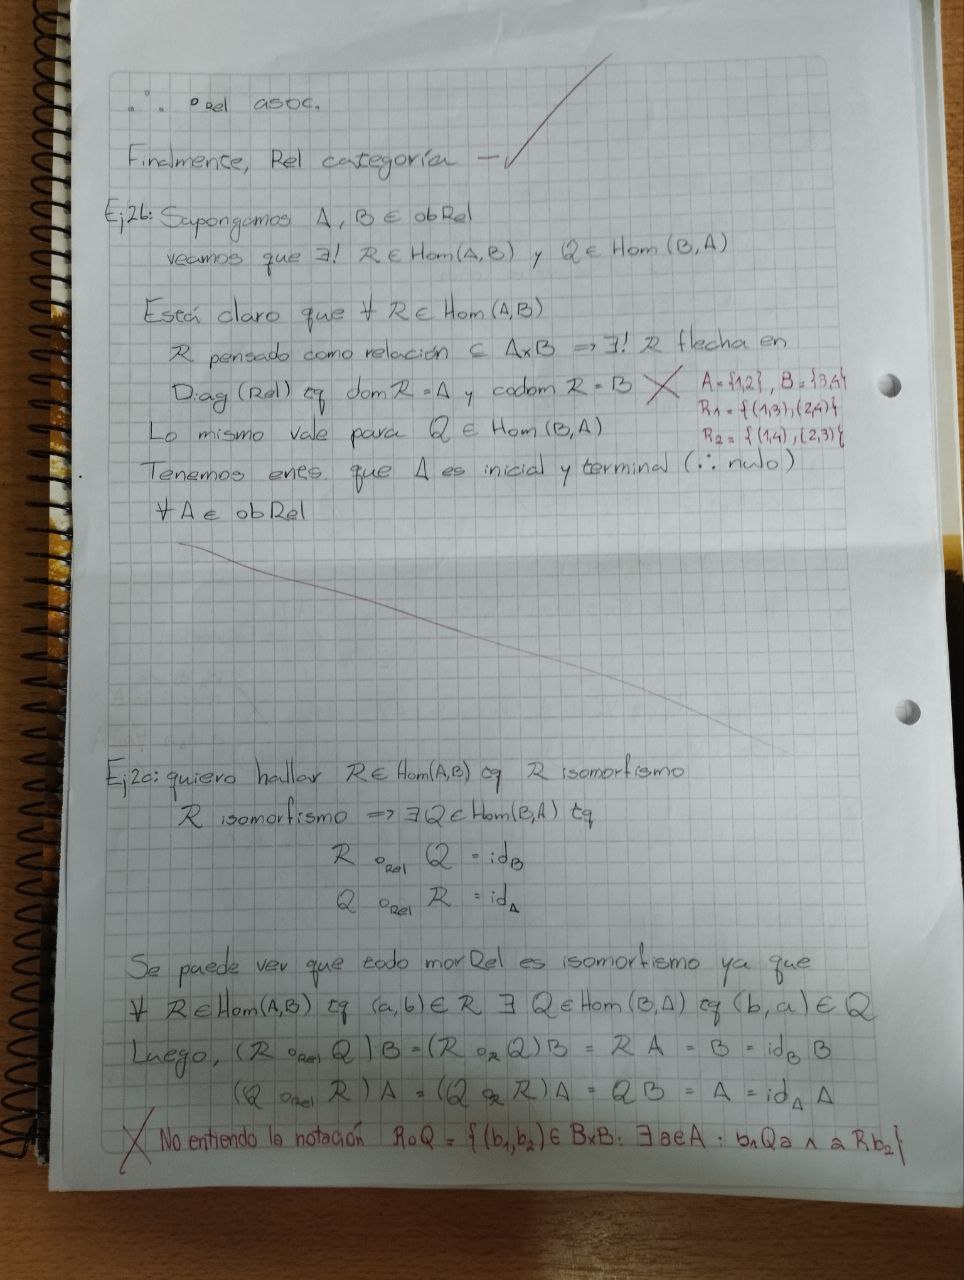 ∴ ∘Rel asoc.
Finalmente, Rel categoría —
Ej2b: Supongamos A, B ∈ obRel
veamos que ∃! R ∈ Hom(A,B) y Q ∈ Hom(B,A)
Está claro que ∀ R ∈ Hom(A,B)
R pensado como relación ⊆ A×B ⇒ ∃! R flecha en
Diag(Rel) tq dom R = A y codom R = B ✗ A={1,2}, B={3,4}
R₁ = {(1,3),(2,4)}
Lo mismo vale para Q ∈ Hom(B,A)
R₂ = {(1,4),(2,3)}
Tenemos entcs. que A es inicial y terminal (∴ nulo)
∀ A ∈ obRel
Ej2c: quiero hallar R ∈ Hom(A,B) tq R isomorfismo
R isomorfismo ⇒ ∃ Q ∈ Hom(B,A) tq
R ∘Rel Q = id_B
Q ∘Rel R = id_A
Se puede ver que todo morRel es isomorfismo ya que
∀ R ∈ Hom(A,B) tq (a,b) ∈ R ∃ Q ∈ Hom(B,A) tq (b,a) ∈ Q
Luego, (R ∘Rel Q)B = (R ∘R Q)B = R A = B = id_B B
(Q ∘Rel R)A = (Q ∘R R)A = QB = A = id_A A
✗ No entiendo la notación R∘Q = {(b₁,b₂) ∈ B×B : ∃ a∈A : b₁Qa ∧ a R b₂}